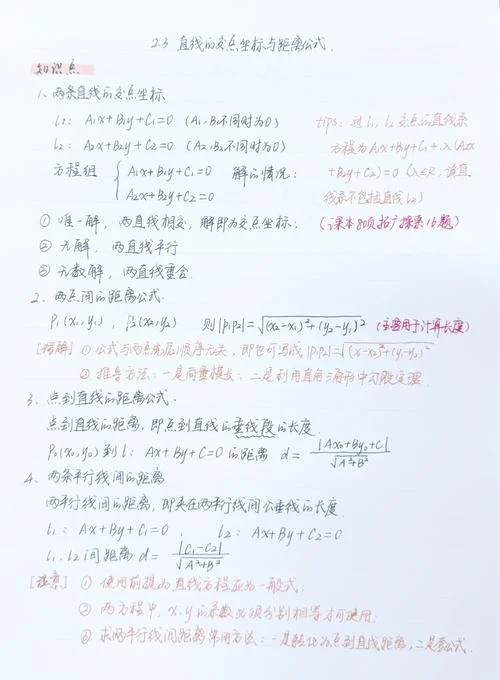 2.3 直线的交点坐标与距离公式.
知识点
1、两条直线的交点坐标
l₁: A₁x+B₁y+C₁=0 (A₁、B₁不同时为0)
l₂: A₂x+B₂y+C₂=0 (A₂、B₂不同时为0)
方程组 { A₁x+B₁y+C₁=0 解的情况:
A₂x+B₂y+C₂=0
tips: 过l₁、l₂交点的直线系
方程为A₁x+B₁y+C₁+λ(A₂x
+B₂y+C₂)=0 (λ∈R, 该直
线系不包括直线l₂)
① 唯一解, 两直线相交, 解即为交点坐标; (课本80页拓广探索16题)
② 无解, 两直线平行
③ 无数解, 两直线重合.
2. 两点间的距离公式.
P₁(x₁,y₁), P₂(x₂,y₂) 则|P₁P₂|=√(x₂-x₁)²+(y₂-y₁)² (主要用于计算长度)
[精解] ① 公式与两点先后顺序无关, 即也可写成|P₁P₂|=√(x₁-x₂)²+(y₁-y₂)²
② 推导方法: 一是向量模长, 二是利用直角三角形中勾股定理
3、点到直线的距离公式.
点到直线的距离, 即点到直线的垂线段的长度.
P₀(x₀,y₀)到l: Ax+By+C=0的距离 d= |Ax₀+By₀+C| / √A²+B²
4、两条平行线间的距离
两平行线间的距离, 即夹在两平行线间公垂线的长度.
l₁: Ax+By+C₁=0, l₂: Ax+By+C₂=0
l₁、l₂间距离 d= |C₁-C₂| / √A²+B²
[注意] ① 使用前提为直线方程应为一般式;
② 两方程中, x、y的系数必须分别相等才可使用;
③ 求两平行线间距离常用方法: 一是转化为点到直线距离, 二是套公式.